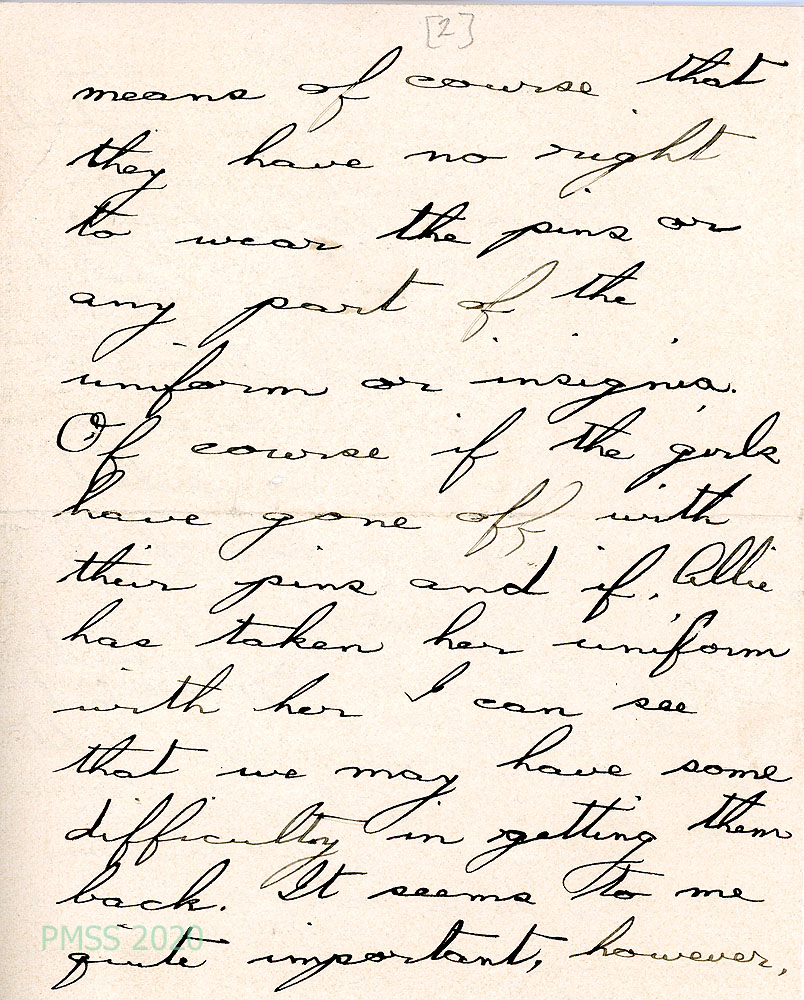 [2]
means of course that
they have no right
to wear the pins or
any part of the
uniform or insignia.
Of course if the girls
have gone off with
their pins and if, Allie
has taken her uniform
with her I can see
that we may have some
difficulty in getting them
back. It seems to me
PMSS 2020
quite important, however,